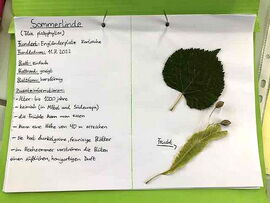 Sommerlinde
(Tilia platyphyllos)
Fundort: Engländerplatz Karlsruhe
Funddatum: 11.7.2022
Blatt: einfach
Blattrand: gesägt
Blattform: herzförmig
Baominformationen:
- Alter: bis 1000 Jahre
- heimisch (in Mittel und Südeuropa)
- die Früchte kann man essen
- Kann eine Höhe von 40 m erreichen
- Sie hat dunkelgrüne, Blätter
- im Hochsommer verströmen die Blüten
einen süßlichen, honigartigen Duft
Frucht